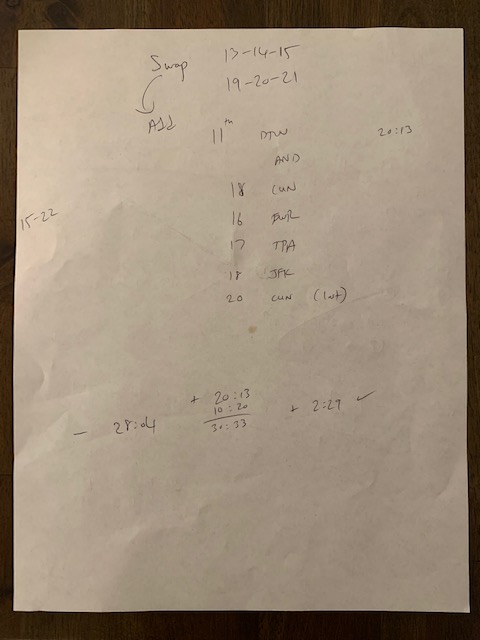 Swap 13-14-15
19-20-21
Add 11th DTW 20:13
AND
18 CUN
15-22
16 EWR
17 TPA
18 JFK
20 CUN (Int)
+ 20:13
10:20
- 28:04 30:33 + 2:29 ✓